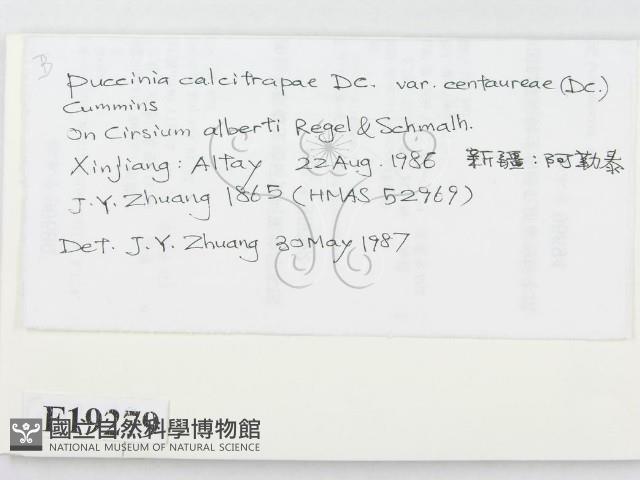 B
Puccinia calcitrapae DC. var. centaureae (DC.)
Cummins
on Cirsium alberti Regel & Schmalh.
Xinjiang: Altay 22 Aug. 1986 新疆:阿勒泰
J.Y. Zhuang 1865 (HMAS 52969)
Det. J.Y. Zhuang 30 May 1987
F19279
國立自然科學博物館
NATIONAL MUSEUM OF NATURAL SCIENCE